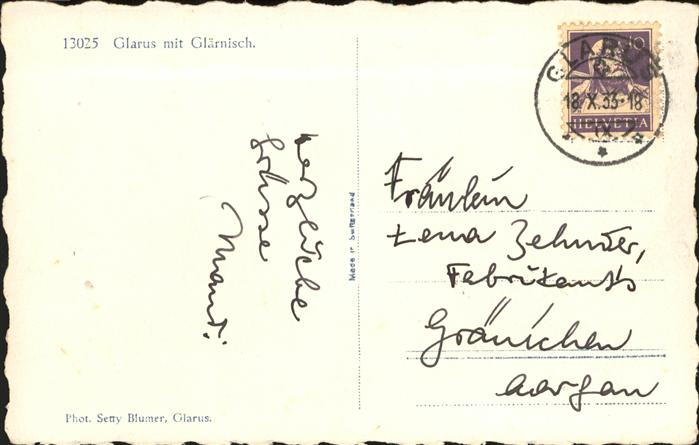 13025 Glarus mit Glärnisch.
10
HELVETIA
GLARUS
18.X.33-18
herzliche
Grüsse
Made in Switzerland
Fräulein
Lena Zehnder,
Fabrikant's
Gränichen
Aargau
Phot. Setty Blumer, Glarus.